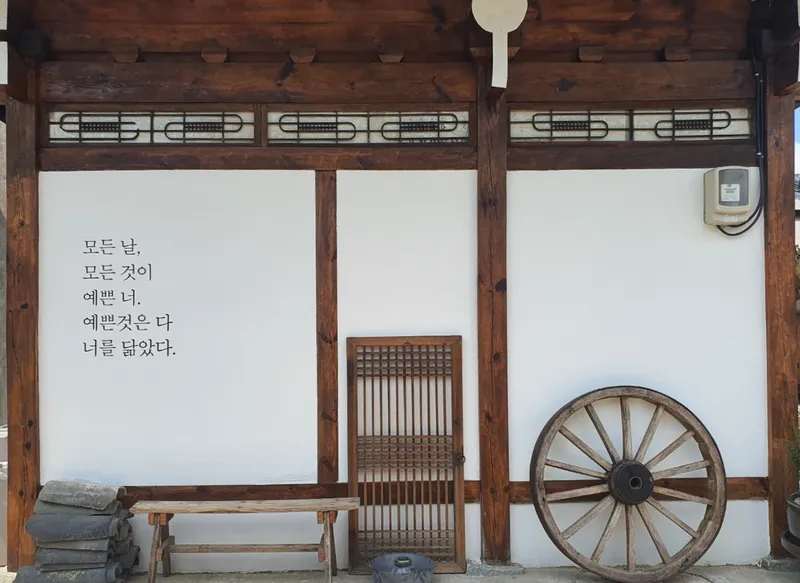 모든 날,
모든 것이
예쁜 너.
예쁜것은 다
너를 닮았다.